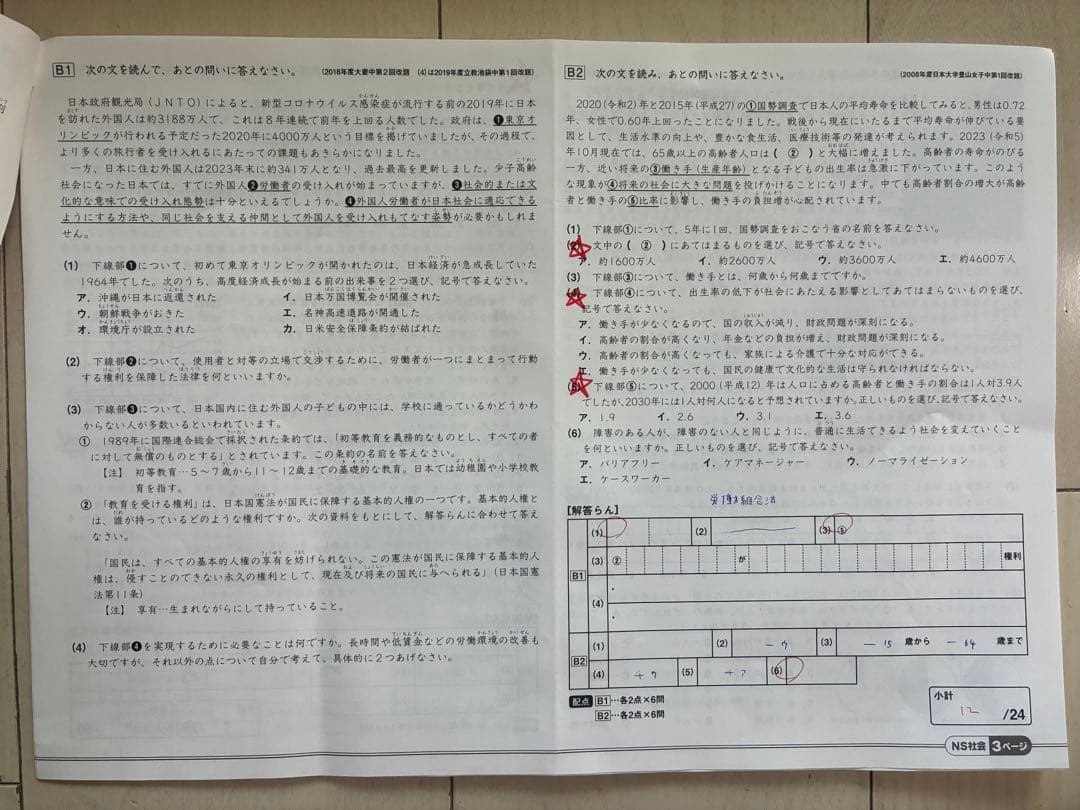 B1 次の文を読んで、あとの問いに答えなさい。 (2018年度大妻中第2回改題 (4)は2019年度立教池袋中第1回改題)
日本政府観光局(JNTO)によると、新型コロナウイルス感染症が流行する前の2019年に日本
を訪れた外国人は約3188万人で、これは8年連続で前年を上回る人数でした。政府は、❶東京オ
リンピックが行われる予定だった2020年に4000万人という目標を掲げていましたが、その過程で、
より多くの旅行者を受け入れるにあたっての課題もあきらかになりました。
一方、日本に住む外国人は2023年末に約341万人となり、過去最高を更新しました。少子高齢
社会になった日本では、すでに外国人❷労働者の受け入れが始まっていますが、❸社会的または文
化的な意味での受け入れ態勢は十分といえるでしょうか。❹外国人労働者が日本社会に適応できる
ようにする方法や、同じ社会を支える仲間として外国人を受け入れもてなす姿勢が必要かもしれま
せん。
(1) 下線部❶について、初めて東京オリンピックが開かれたのは、日本経済が急成長していた
1964年でした。次のうち、高度経済成長が始まる前の出来事を2つ選び、記号で答えなさい。
ア. 沖縄が日本に返還された イ. 日本万国博覧会が開催された
ウ. 朝鮮戦争がおきた エ. 名神高速道路が開通した
オ. 環境庁が設立された カ. 日米安全保障条約が結ばれた
(2) 下線部❷について、使用者と対等の立場で交渉するために、労働者が一つにまとまって行動
する権利を保障した法律を何といいますか。
(3) 下線部❸について、日本国内に住む外国人の子どもの中には、学校に通っているかどうかわ
からない人が多数いるといわれています。
① 1989年に国際連合総会で採択された条約では、「初等教育を義務的なものとし、すべての者
に対して無償のものとする」とされています。この条約の名前を答えなさい。
【注】 初等教育…5~7歳から11~12歳までの基礎的な教育。日本では幼稚園や小学校教
育を指す。
② 「教育を受ける権利」は、日本国憲法が国民に保障する基本的人権の一つです。基本的人権と
は、誰が持っているどのような権利ですか。次の資料をもとにして、解答らんに合わせて答え
なさい。
「国民は、すべての基本的人権の享有を妨げられない。この憲法が国民に保障する基本的
人権は、侵すことのできない永久の権利として、現在及び将来の国民に与へられる」(日本国憲
法第11条)
【注】 享有…生まれながらにして持っていること。
(4) 下線部❹を実現するために必要なことは何ですか。長時間や低賃金などの労働環境の改善も
大切ですが、それ以外の点について自分で考えて、具体的に2つあげなさい。
B2 次の文を読み、あとの問いに答えなさい。 (2008年度日本大学豊山女子中第1回改題)
2020(令和2)年と2015年(平成27)の①国勢調査で日本人の平均寿命を比較してみると、男性は0.72
年、女性で0.60年上回ったことになりました。戦後から現在にいたるまで平均寿命が伸びている要
因として、生活水準の向上や、豊かな食生活、医療技術等の発達が考えられます。2023(令和5)
年10月現在では、65歳以上の高齢者人口は( ② )と大幅に増えました。高齢者の寿命がのびる
一方、近い将来の③働き手(生産年齢)となる子どもの出生率は急激に下がっています。このよう
な現象が④将来の社会に大きな問題を投げかけることになります。中でも高齢者割合の増大が高齢
者と働き手の⑤比率に影響し、働き手の負担増が心配されています。
(1) 下線部①について、5年に1回、国勢調査をおこなう省の名前を答えなさい。
(2) 文中の( ② )にあてはまるものを選び、記号で答えなさい。
ア. 約1600万人 イ. 約2600万人 ウ. 約3600万人 エ. 約4600万人
(3) 下線部③について、働き手とは、何歳から何歳までですか。
(4) 下線部④について、出生率の低下が社会にあたえる影響としてあてはまらないものを選び、
記号で答えなさい。
ア. 働き手が少なくなるので、国の収入が減り、財政問題が深刻になる。
イ. 高齢者の割合が高くなり、年金などの負担が増え、財政問題が深刻になる。
ウ. 高齢者の割合が高くなっても、家族による介護で十分な対応ができる。
エ. 働き手が少なくなっても、国民の健康で文化的な生活は守られなければならない。
(5) 下線部⑤について、2000(平成12)年は人口に占める高齢者と働き手の割合は1人対3.9人
でしたが、2030年には1人対何人になると予想されていますか。正しいものを選び、記号で答えなさい。
ア. 1.9 イ. 2.6 ウ. 3.1 エ. 3.6
(6) 障害のある人が、障害のない人と同じように、普通に生活できるよう社会を変えていくこと
を何といいますか。正しいものを選び、記号で答えなさい。
ア. バリアフリー イ. ケアマネージャー ウ. ノーマライゼーション
エ. ケースワーカー
労働組合法
[解答らん]
B1 (1) (2) (3) ①
(3) ② が 権利
(4)
B2 (1) (2) ウ (3) 15 歳から 64 歳まで
(4) ウ (5) ア (6)
配点 B1…各2点×6問
B2…各2点×6問
小計
12 /24
NS社会 3ページ